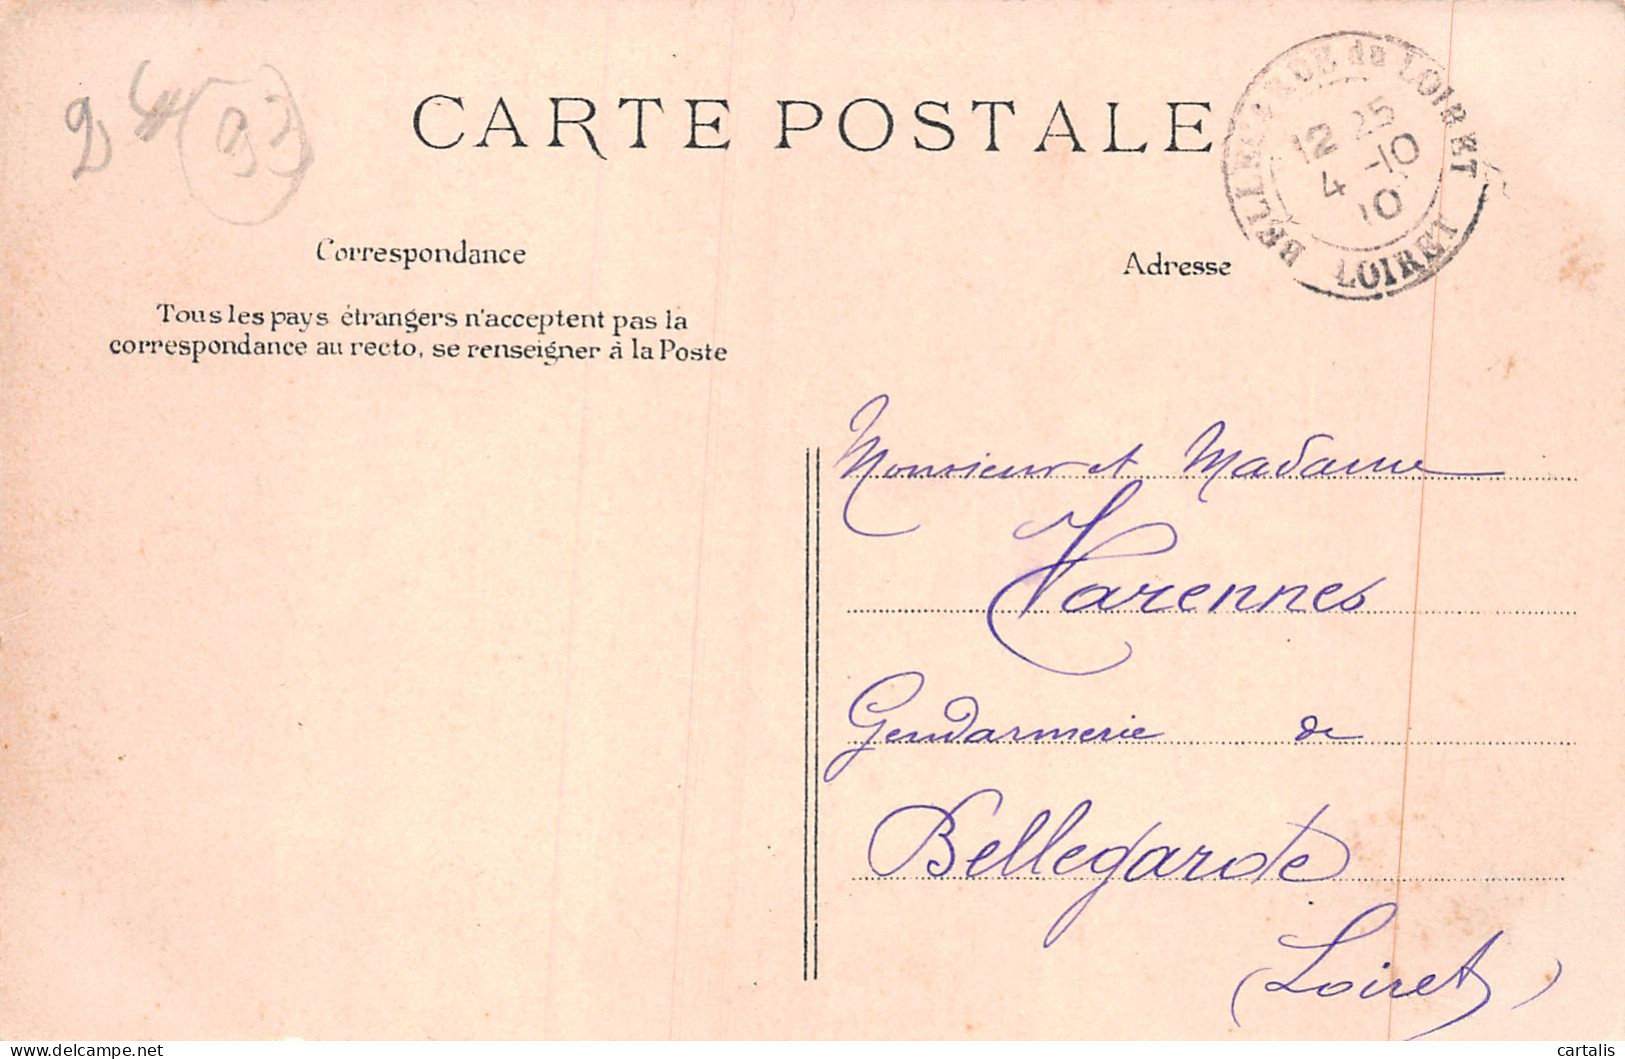 CARTE POSTALE
Correspondance
Adresse
Tous les pays étrangers n'acceptent pas la
correspondance au recto, se renseigner à la Poste
BELLEGARDE du LOIRET
12 25
4 -10
10
LOIRET
Monsieur et Madame
Varennes
Gendarmerie de
Bellegarde
(Loiret)
delcampe.net
cartalis